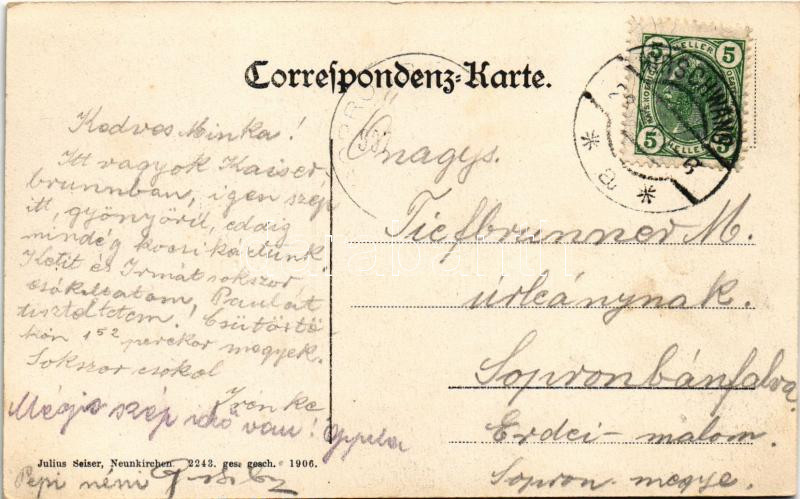 Correspondenz-Karte.
5 HELLER 5
5 HELLER 5
Kedves Minka!
Itt vagyok Kaiser-
brunnban, igen szép
itt, gyönyörü, eddig
mindég kocsikáztunk
Ketit és Irmát sokszor
csókoltatom! Paulát
tiszteltetem! Csütörtö
kön 1 52 perckor megyek.
Sokszor csókol
Irenke
Mégis szép idő van!
Pepi néni
Önagys.
Tiefbrunner M.
úrleánynak.
Sopronbánfalva.
Erdei-malom.
Sopron-megye.
Julius Seiser, Neunkirchen. 2243. ges. gesch. 1906.